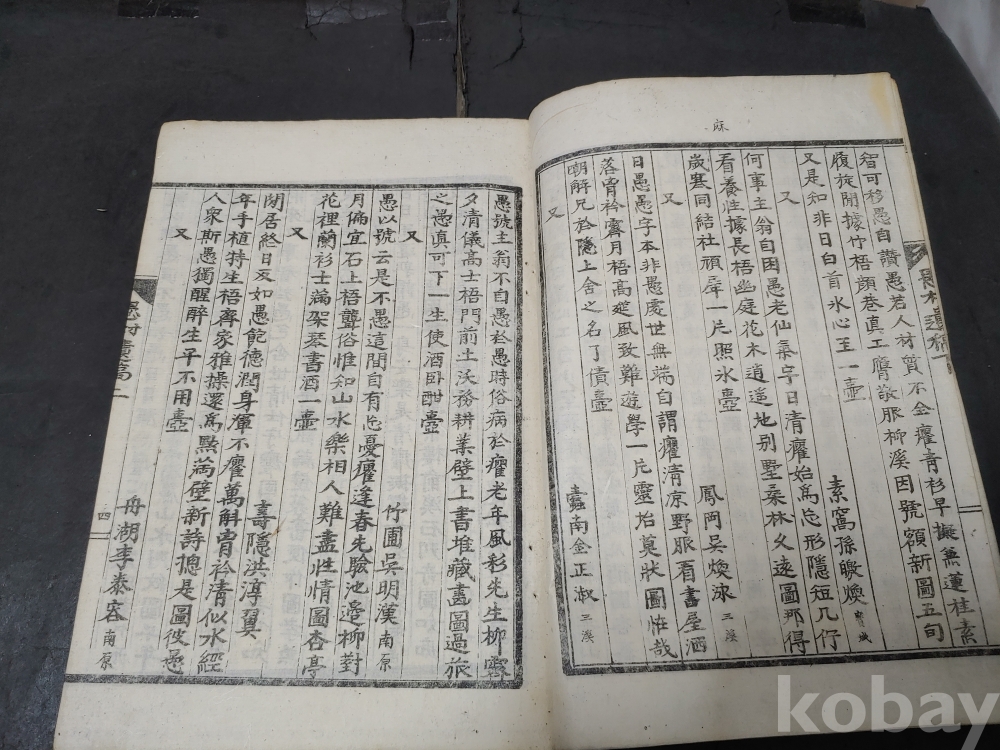 麻
智可移愚自讚愚若人材質不全癯青衫早擬無蓮桂素
履旋閒據竹梧顔巷眞工膺敬服柳溪因號額新圖五旬
又是知非日白首氷心至一壺
素窩孫皦煥
又
何事主翁自困愚老仙氣字日清癯始爲忘形隱短几仔
看養性據長梧幽庭花木逍遙地别墅桑林久遠圖那得
歲寒同結社頑犀一片照氷壺
鳳阿吳煥泳 三溪
又
日愚愚字本非愚處世無端自謂癯清凉野服看書屋洒
落胷衿霽月梧高蹤風致難遊學一片靈坮莫狀圖怪哉
朝解兄於隱上舍之名了債壺
蠹南金正淑 三溪
又
愚號主翁不自愚於愚時俗病於癯老年風彩先生柳霽
夕清儀高士梧門前土沃務耕業壁上書堆藏畵圖過旅
之愚眞可下一生使酒臥酣壺
竹圃吳明漢 南原
又
愚以號云是不愚這間自有忘憂癯逢春先驗池邉柳對
月偏宜石上梧聾俗惟知山水樂相人難盡性情圖杏亭
花裡蘭衫士滿架琴書酒一壺
壽隱洪淳翼
又
閉居終日反如愚飽德潤身渾不癯萬斛胷衿清似水經
年手植特生梧齊家雅操還爲點滿壁新詩摠是圖彼愚
人衆斯愚獨醒醉生平不用壺
舟湖李泰容 南原
又
愚村遺稿二
四